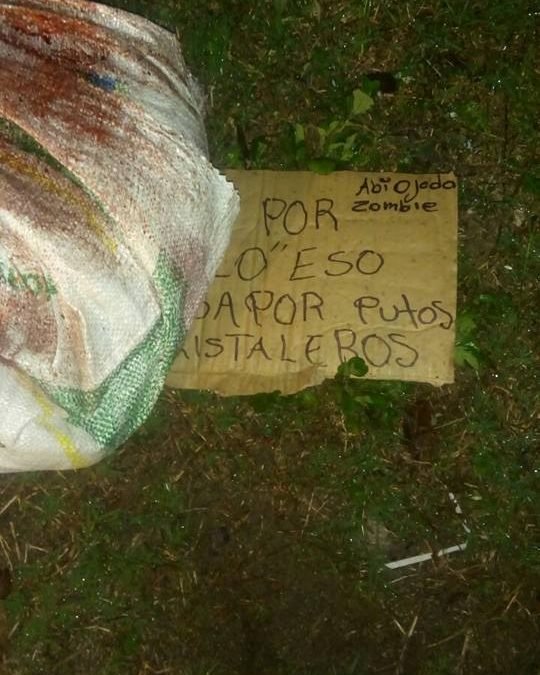 Abi Ojeda
Zombie
POR
LO" ESO
PAPOR PUTOS
KISTALEROS